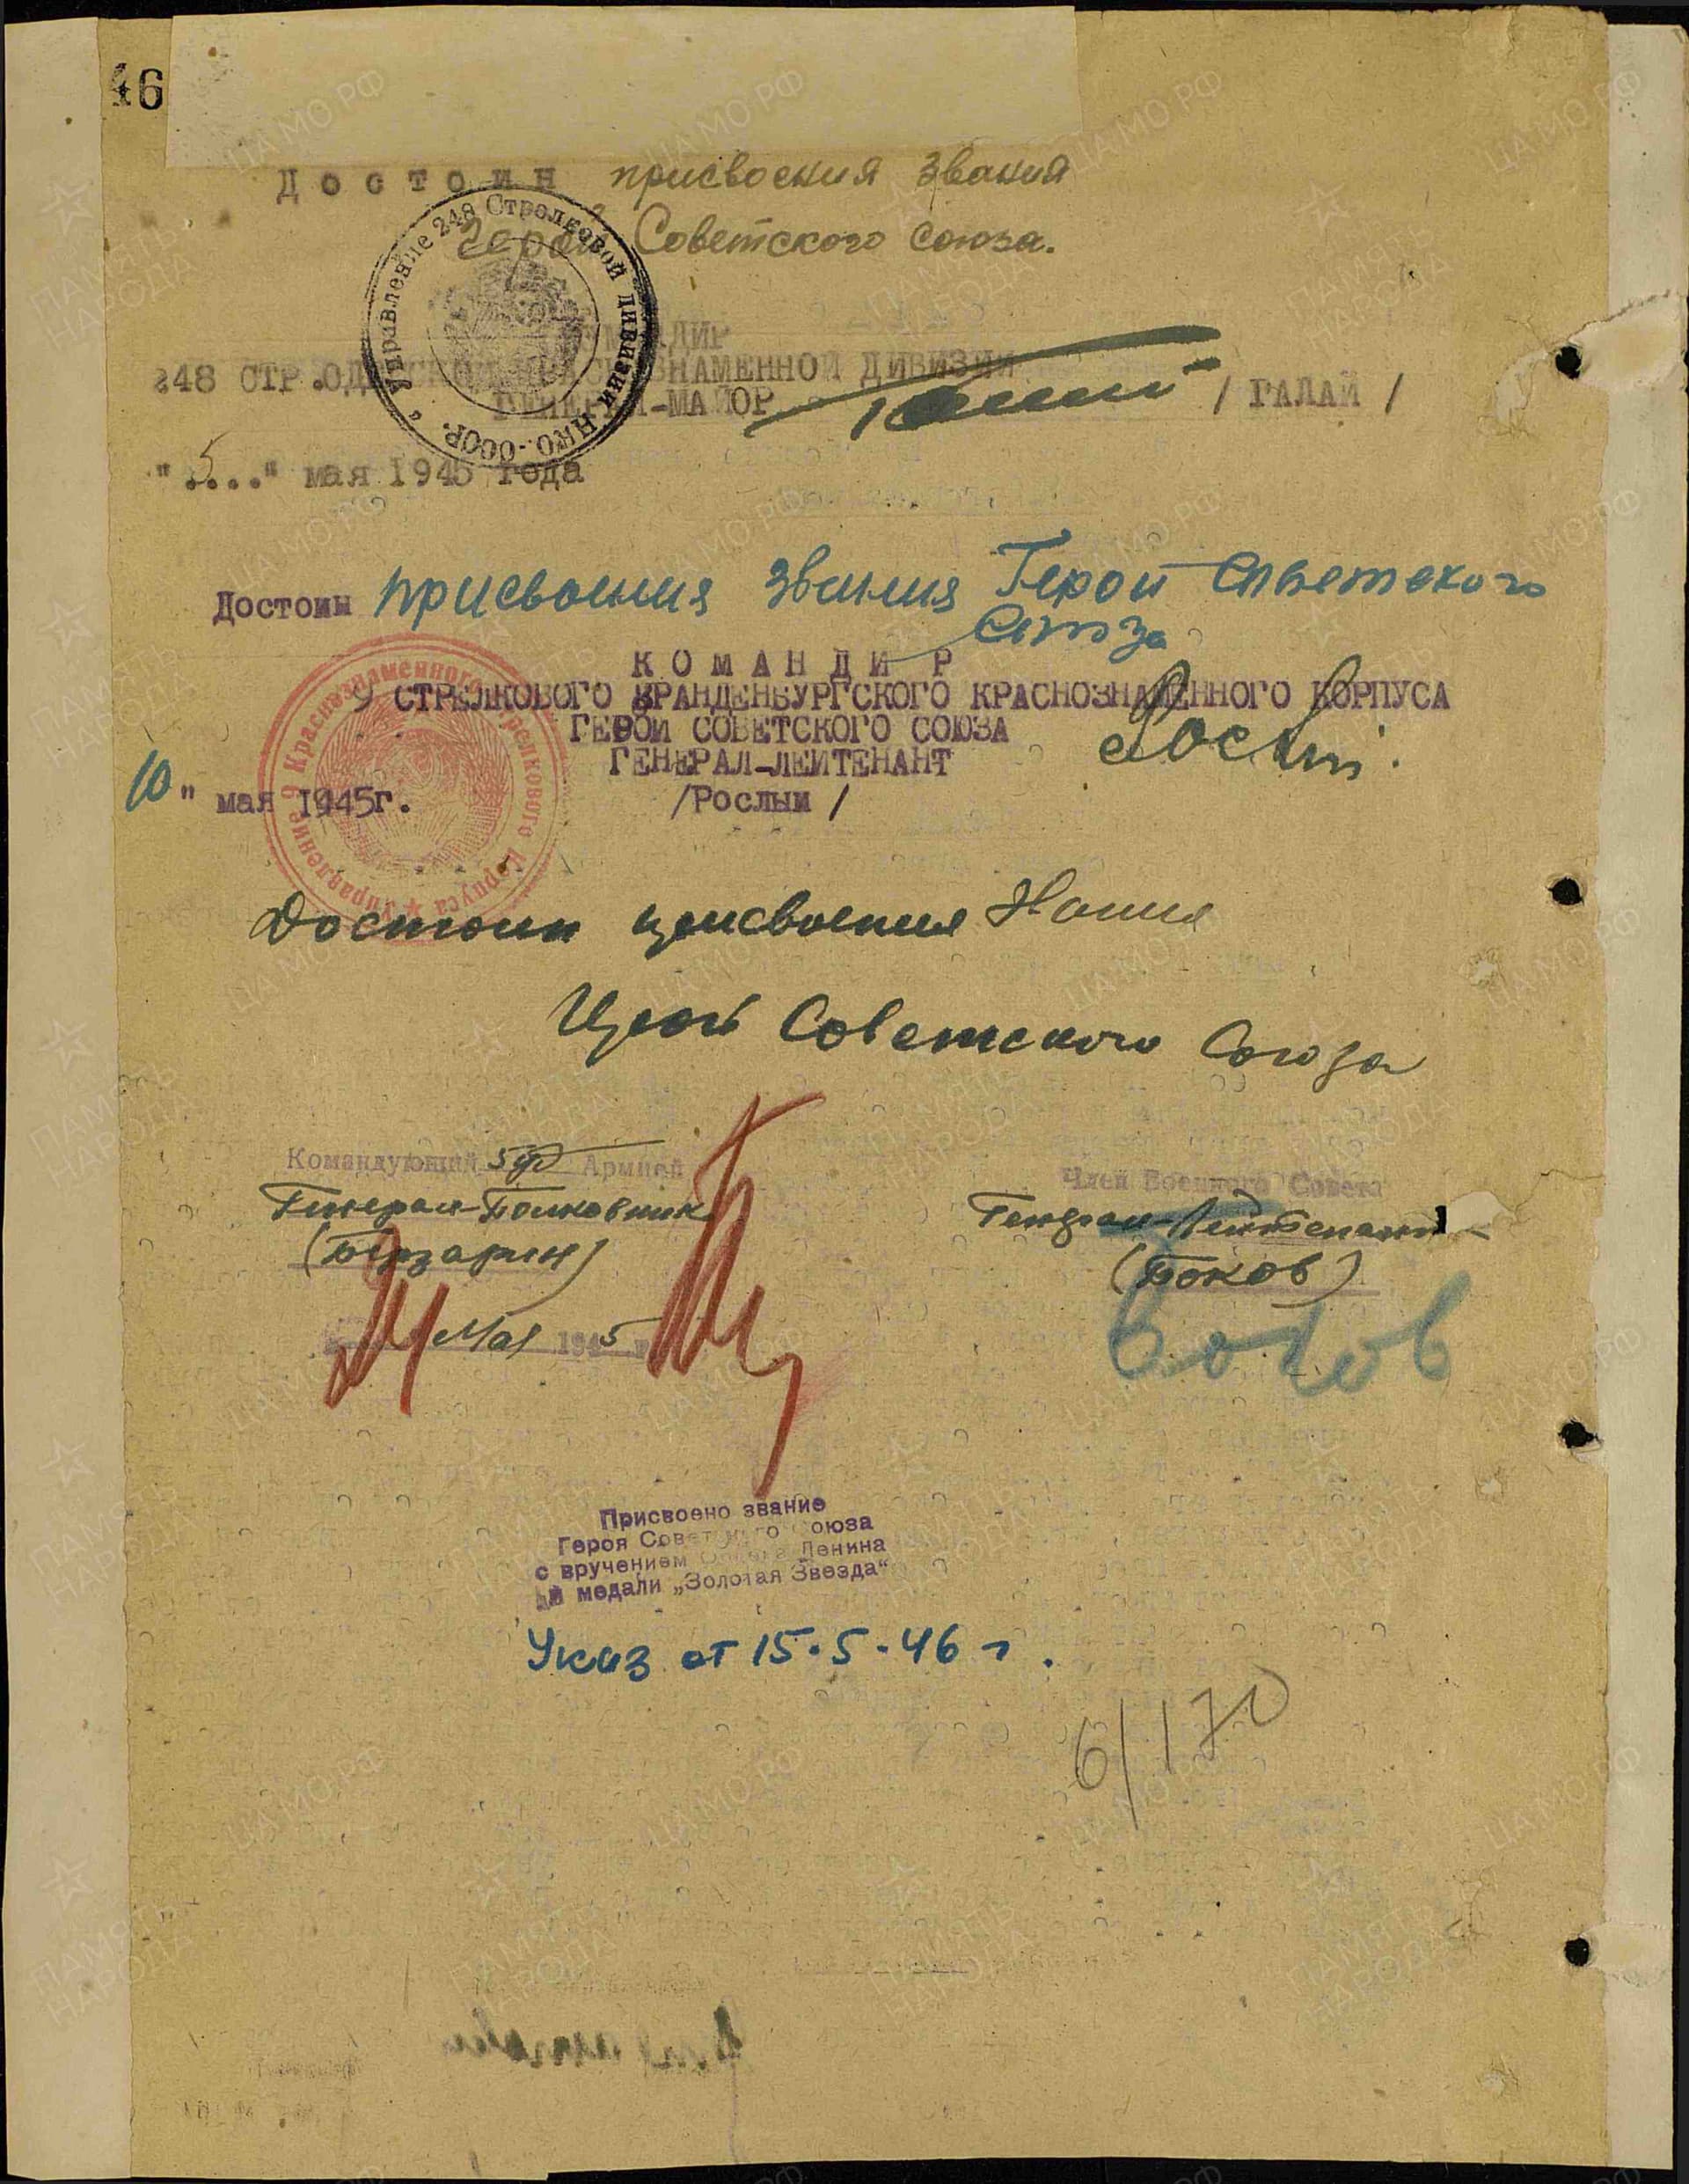 46
Достоин присвоения звания
Герой Советского Союза.
Управление 248 Стрелковой дивизии НКО-СССР.
КОМАНДИР
248 СТР.ОДЕССКОЙ КРАСНОЗНАМЕННОЙ ДИВИЗИИ
ГЕНЕРАЛ-МАЙОР / ГАЛАЙ /
"5..." мая 1945 года
Достоин присвоения звания Герой Советского
Союза
КОМАНДИР
9 СТРЕЛКОВОГО БРАНДЕНБУРГСКОГО КРАСНОЗНАМЕННОГО КОРПУСА
ГЕРОЙ СОВЕТСКОГО СОЮЗА
ГЕНЕРАЛ-ЛЕЙТЕНАНТ
10 " мая 1945г. /Рослый /
Управление 9 Краснознаменного Стрелкового Корпуса
Достоин присвоения
Герой Советского Союза
Командующий 5 уд Армией
Член Военного Совета
Генерал-Полковник
Генерал-Лейтенант
(Берзарин)
(Боков)
Мая 1945
Боков
Присвоено звание
Героя Советского Союза
с вручением Ордена Ленина
и медали „Золотая Звезда“
Указ от 15.5.46 г.
6/170